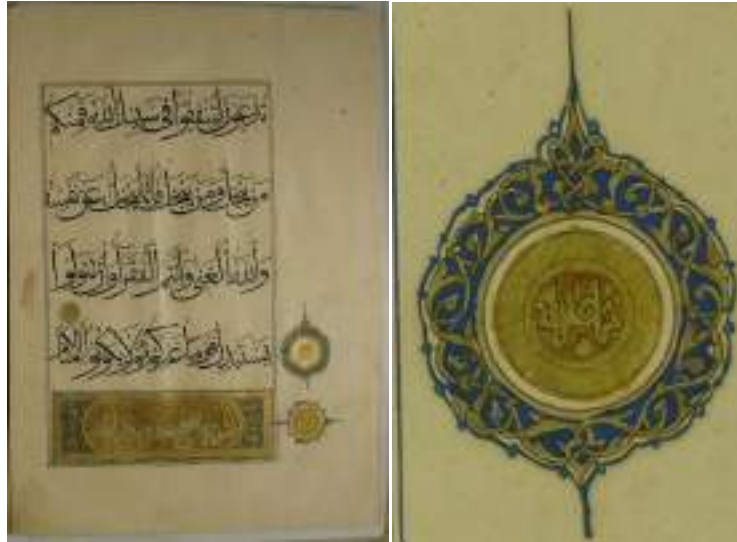 تدعون لتنفقوا في سبيل الله فمنكم
من يبخل ومن يبخل فإنما يبخل عن نفسه
والله الغني وأنتم الفقراء وإن تتولوا
يستبدل قوما غيركم ثم لا يكونوا أمثالكم